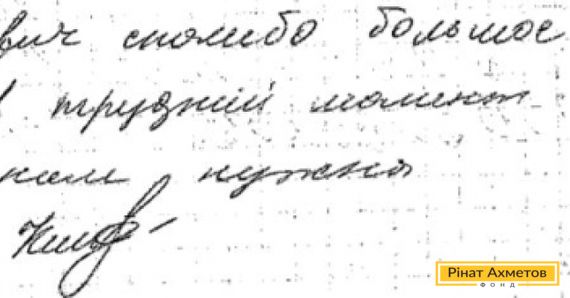 вич спасибо большое
в трудний момент
нам нужна
Рінат Ахметов
ФОНД